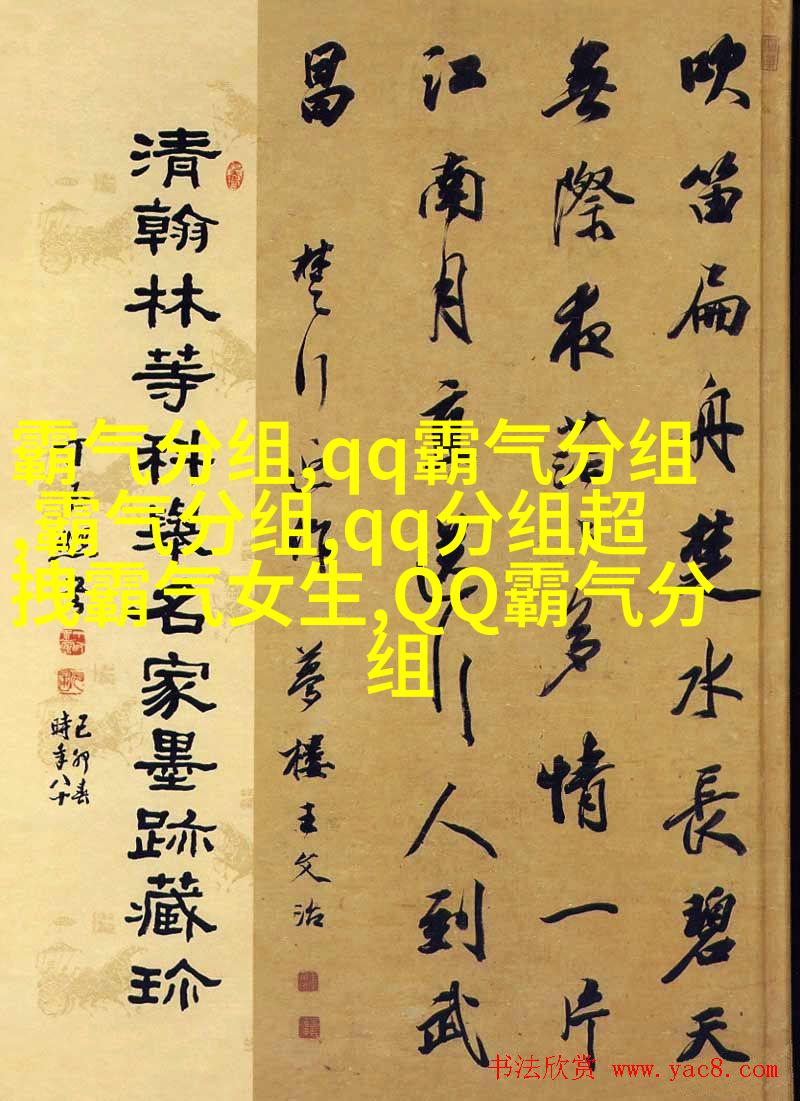 吹笛扁舟楚水長碧天
無際夜多情一片
江南月行人到武
昌
楚行近作 夢樓王文治
清翰林等科名家墨跡藏珍
己卯春
時年八十
霸气分组,qq霸气分组
,霸气分组,qq分组超
拽霸气女生,QQ霸气分
组
书法欣赏 www.yac8.com